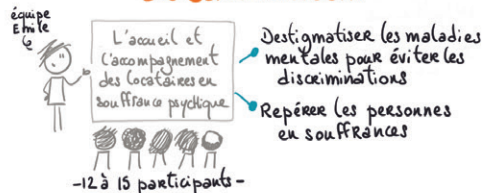 équipe
Emile
L'accueil et
l'accompagnement
des locataires en
souffrance psychique
Destigmatiser les maladies
mentales pour éviter les
discriminations
Repérer les personnes
en souffrances
-12 à 15 participants-